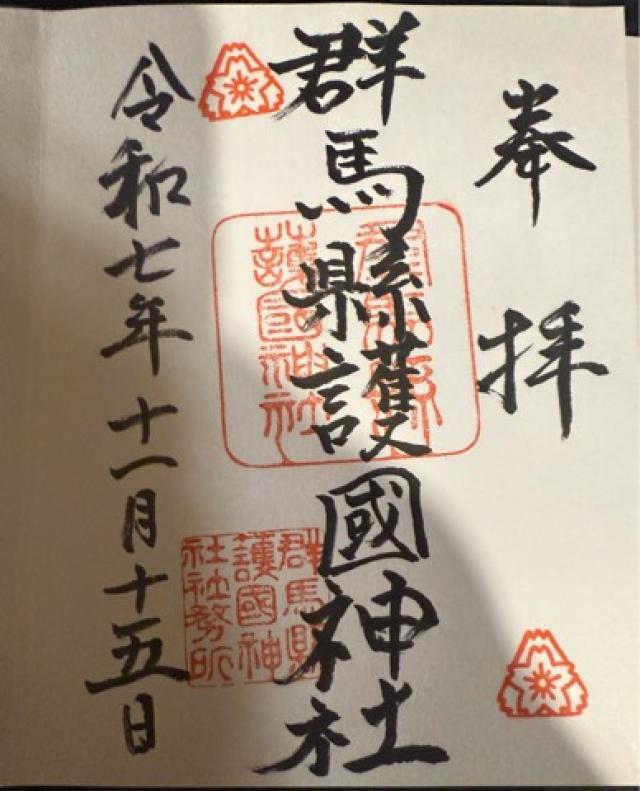 奉拝
群馬縣護國神社
群馬縣護國神社
群馬縣
護國神
社社務所
令和七年十一月十五日